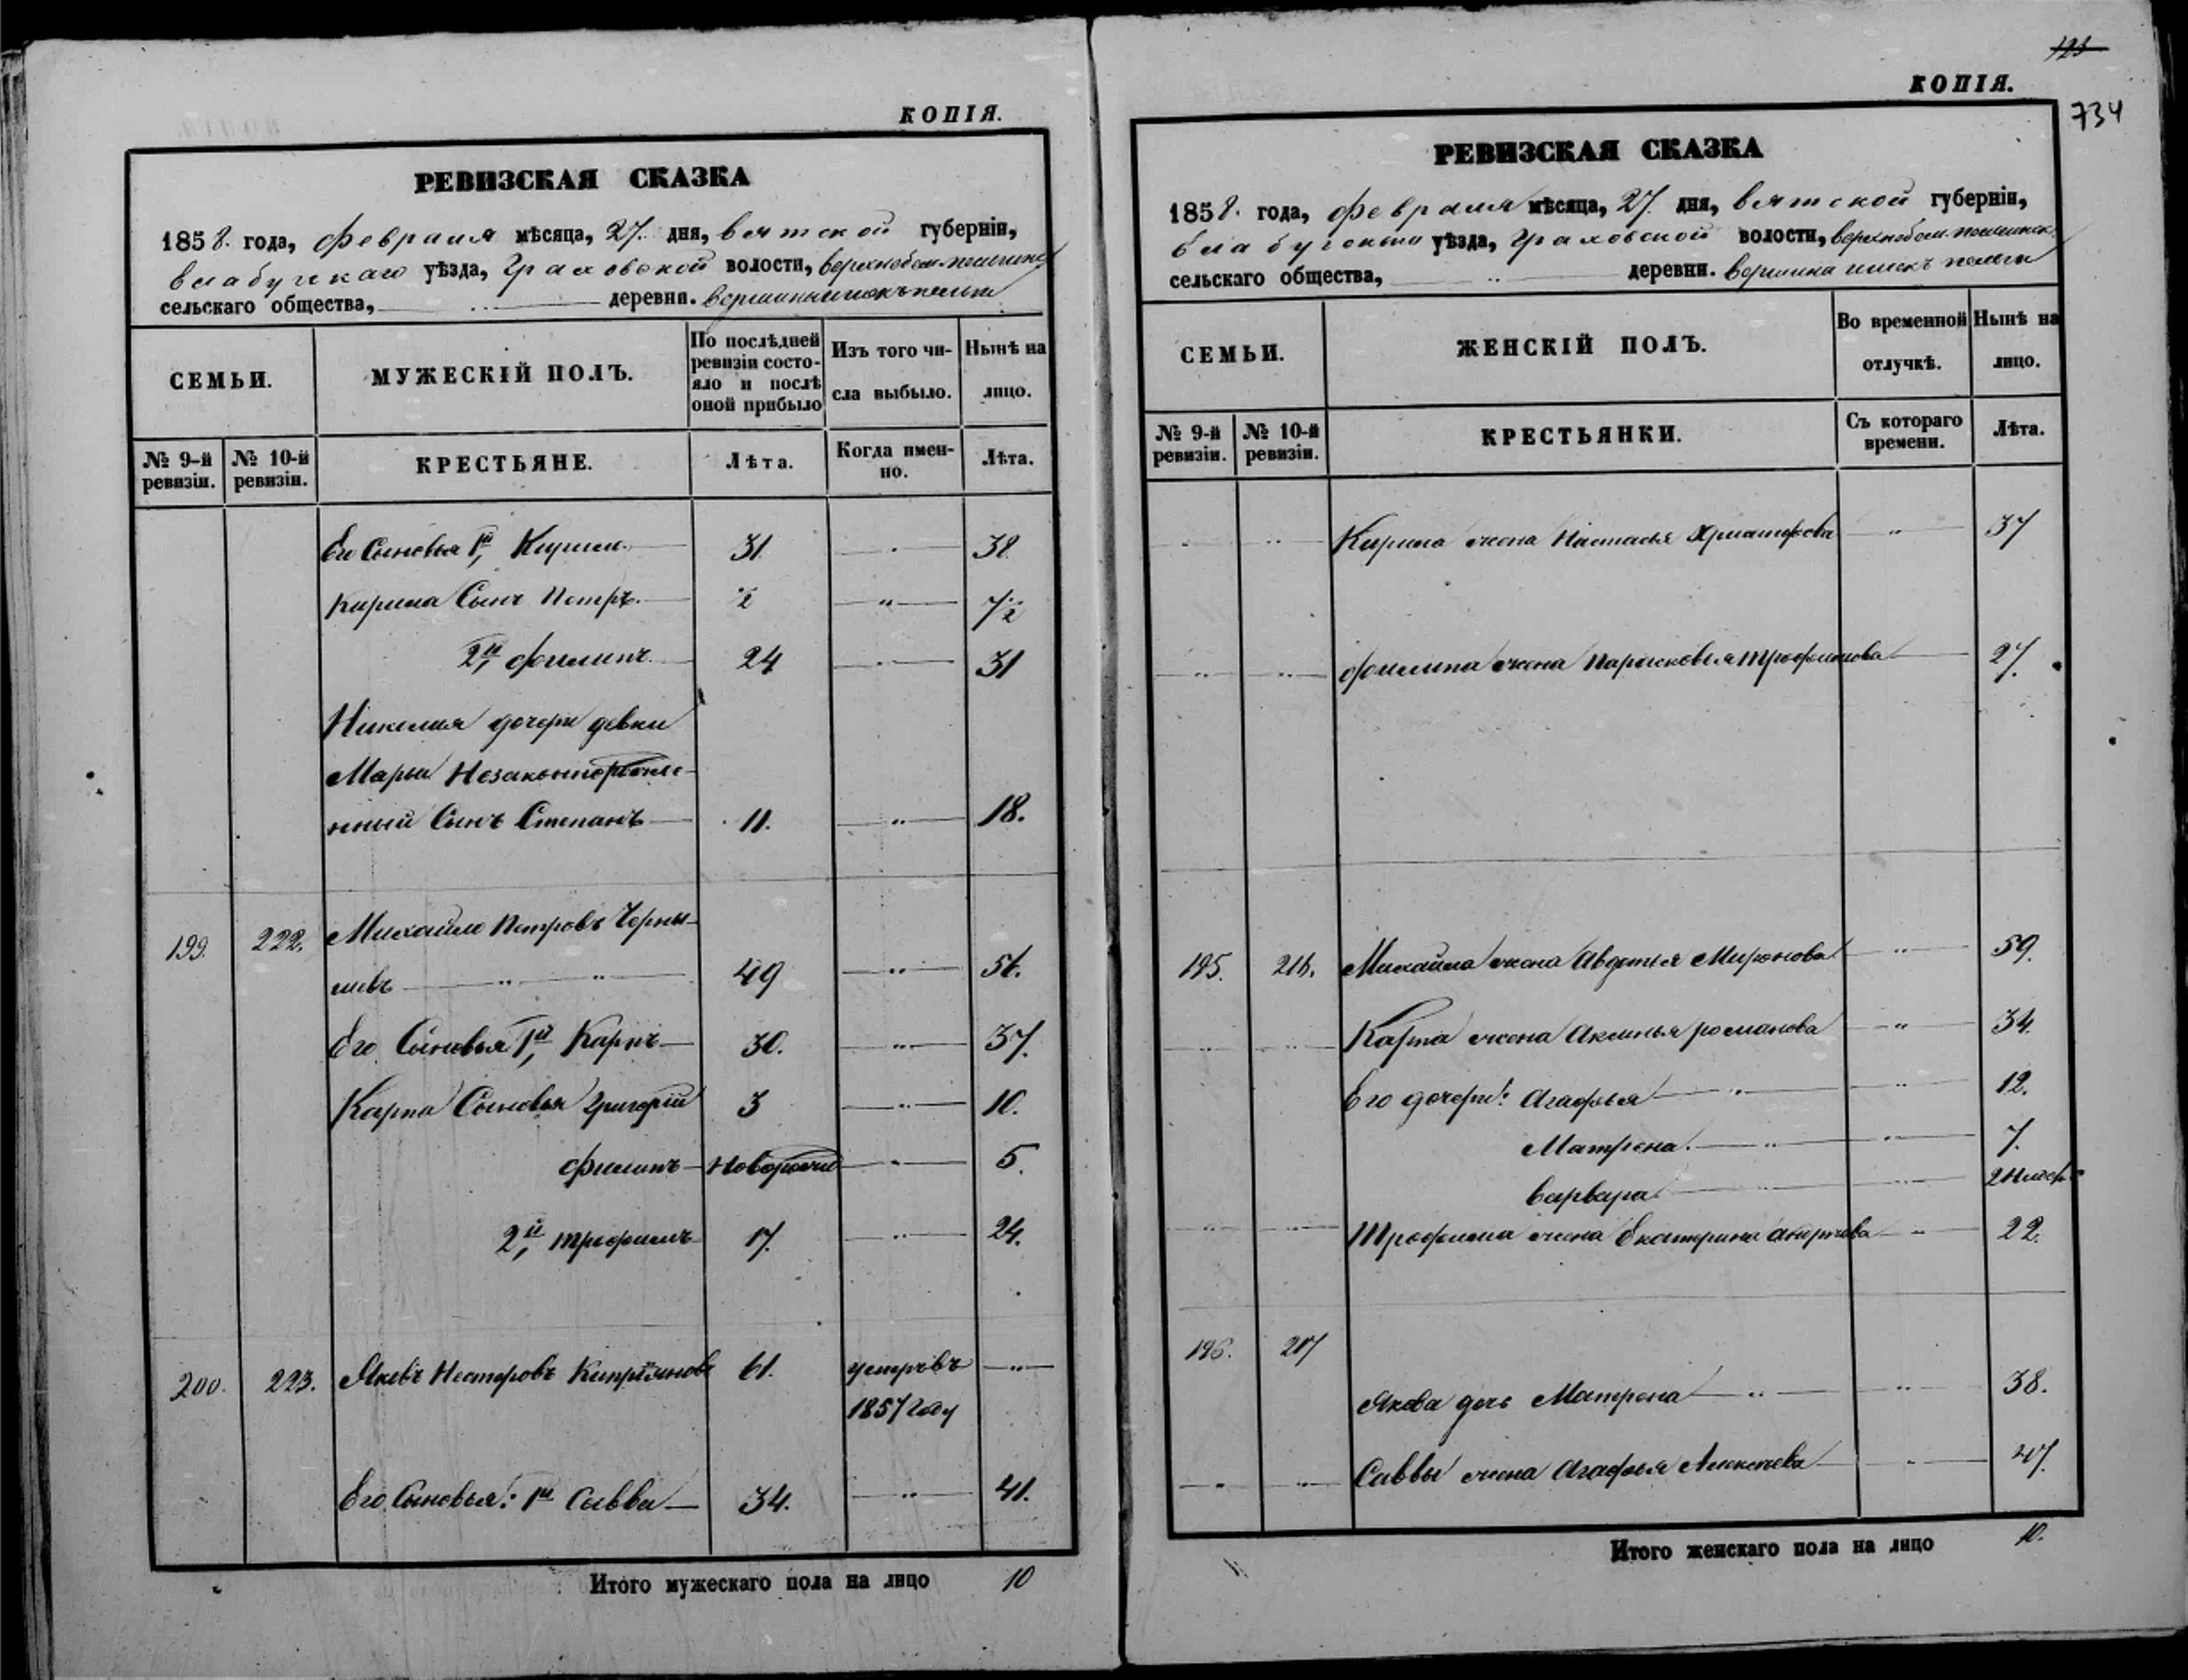 КОПІЯ.
РЕВИЗСКАЯ СКАЗКА
1858. года, Февраля мѣсяца, 27. дня, Вятской губерніи,
Елабугскаго уѣзда, Граховской волости,
сельскаго общества, деревни.
СЕМЬИ.
МУЖЕСКІЙ ПОЛЪ.
По послѣдней ревизіи состо-
яло и послѣ
оной прибыло
Изъ того чи-
сла выбыло.
Нынѣ на
лицо.
№ 9-й ревизіи.
№ 10-й ревизіи.
КРЕСТЬЯНЕ.
Лѣта.
Когда имен-
но.
Лѣта.
Его Сыновья 1й, Кирил. 31 38
Кирила Сынъ Петръ. ½ 7½
2й, Филипъ. 24 31
Никилия дочери девки
Марьи Незаконнорожде-
нный Сынъ Степанъ 11. 18.
199. 222. Михайло Петровъ Черны-
шевъ 49 56.
Его Сыновья 1й, Карпъ 30. 37.
Карпа Сыновья Григорій 3 10.
Филипъ Новорожд 5.
2й, Трофимъ 17. 24.
200. 223. Яковъ Нестеровъ Кипріяновъ 61. умеръ въ
1857 году
Его Сыновья: 1й Савва 34. 41.
Итого мужескаго пола на лицо 10
123
КОПІЯ.
734
РЕВИЗСКАЯ СКАЗКА
1858. года, Февраля мѣсяца, 27. дня, Вятской губерніи,
уѣзда, Граховской волости,
сельскаго общества, деревни.
СЕМЬИ.
ЖЕНСКІЙ ПОЛЪ.
Во временной
отлучкѣ.
Нынѣ на
лицо.
№ 9-й ревизіи.
№ 10-й ревизіи.
КРЕСТЬЯНКИ.
Съ котораго
времени.
Лѣта.
Кирила жена Настасья 37
Филипа жена Парасковья Трофимова 27.
195. 216. Михайла жена Авдотья Миронова 59.
Карпа жена Аксинья романова 34.
Его дочери: Агафья 12.
Матрена. 7.
Варвара.
Трофима жена Екатерина Андреева 22.
196. 217
Якова дочь Матрена 38.
Саввы жена Агафья Алексеева 47.
Итого женскаго пола на лицо 10.